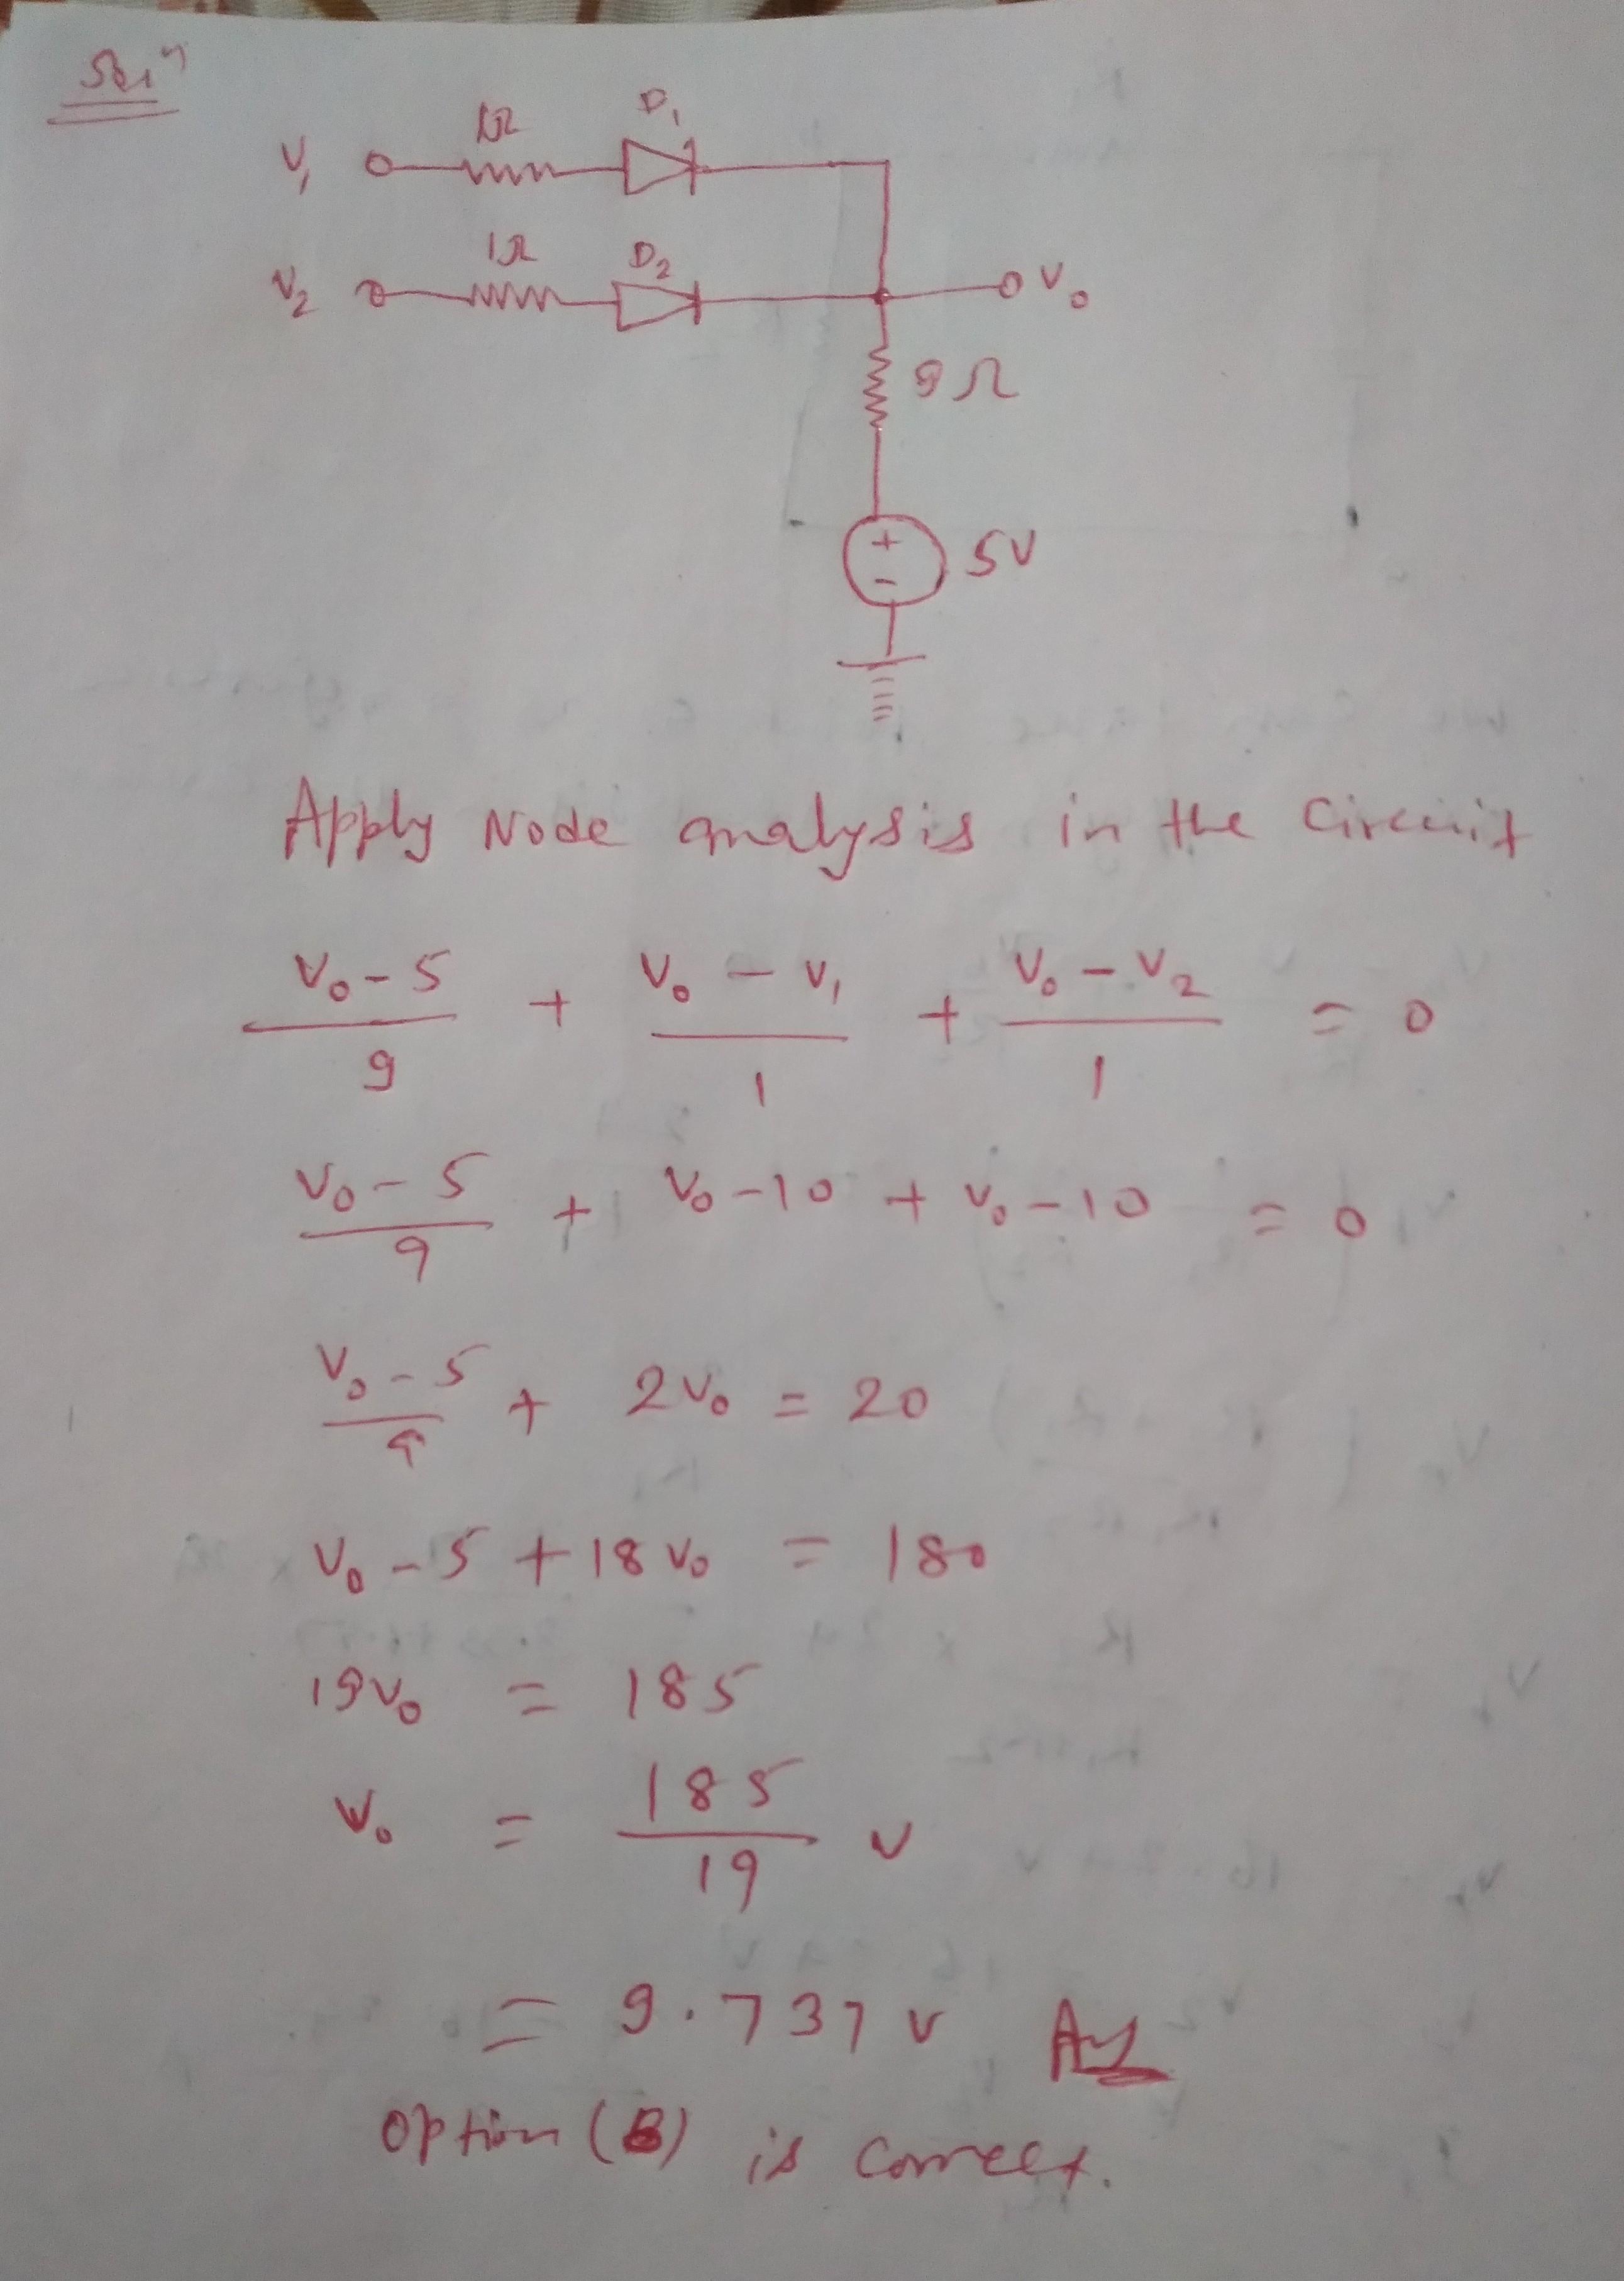 Sol<sup>n</sup>
1Ω D₁
V₁
1Ω D₂
V₂ V₀
9Ω
+
- 5V
Apply Node analysis in the Circuit
V₀-5/9 + V₀-V₁/1 + V₀-V₂/1 = 0
V₀-5/9 + V₀-10 + V₀-10 = 0
V₀-5/9 + 2V₀ = 20
V₀-5+18V₀ = 180
19V₀ = 185
V₀ = 185/19 V
= 9.737 V Ans
Option (B) is correct.